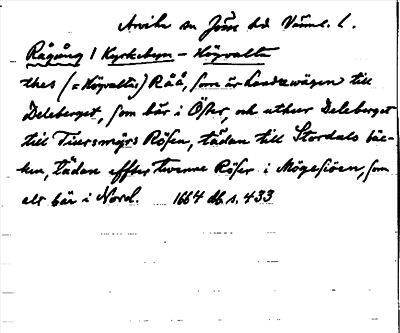 Arvika sn Jösse hd Värml. l.
Rågång / Kyrkebyn - Högvalta
thes (= Högvaltas) Råå, som är Landzwägen till
Deleberget, som bär i Öster, och uthur Deleberget
till Tiuersmyrs Rösen, tädan till Stordals bäc-
ken, tädan effter twenne Röser i Mögesiöen, som
alt bär i Nord. 1664 db s. 433